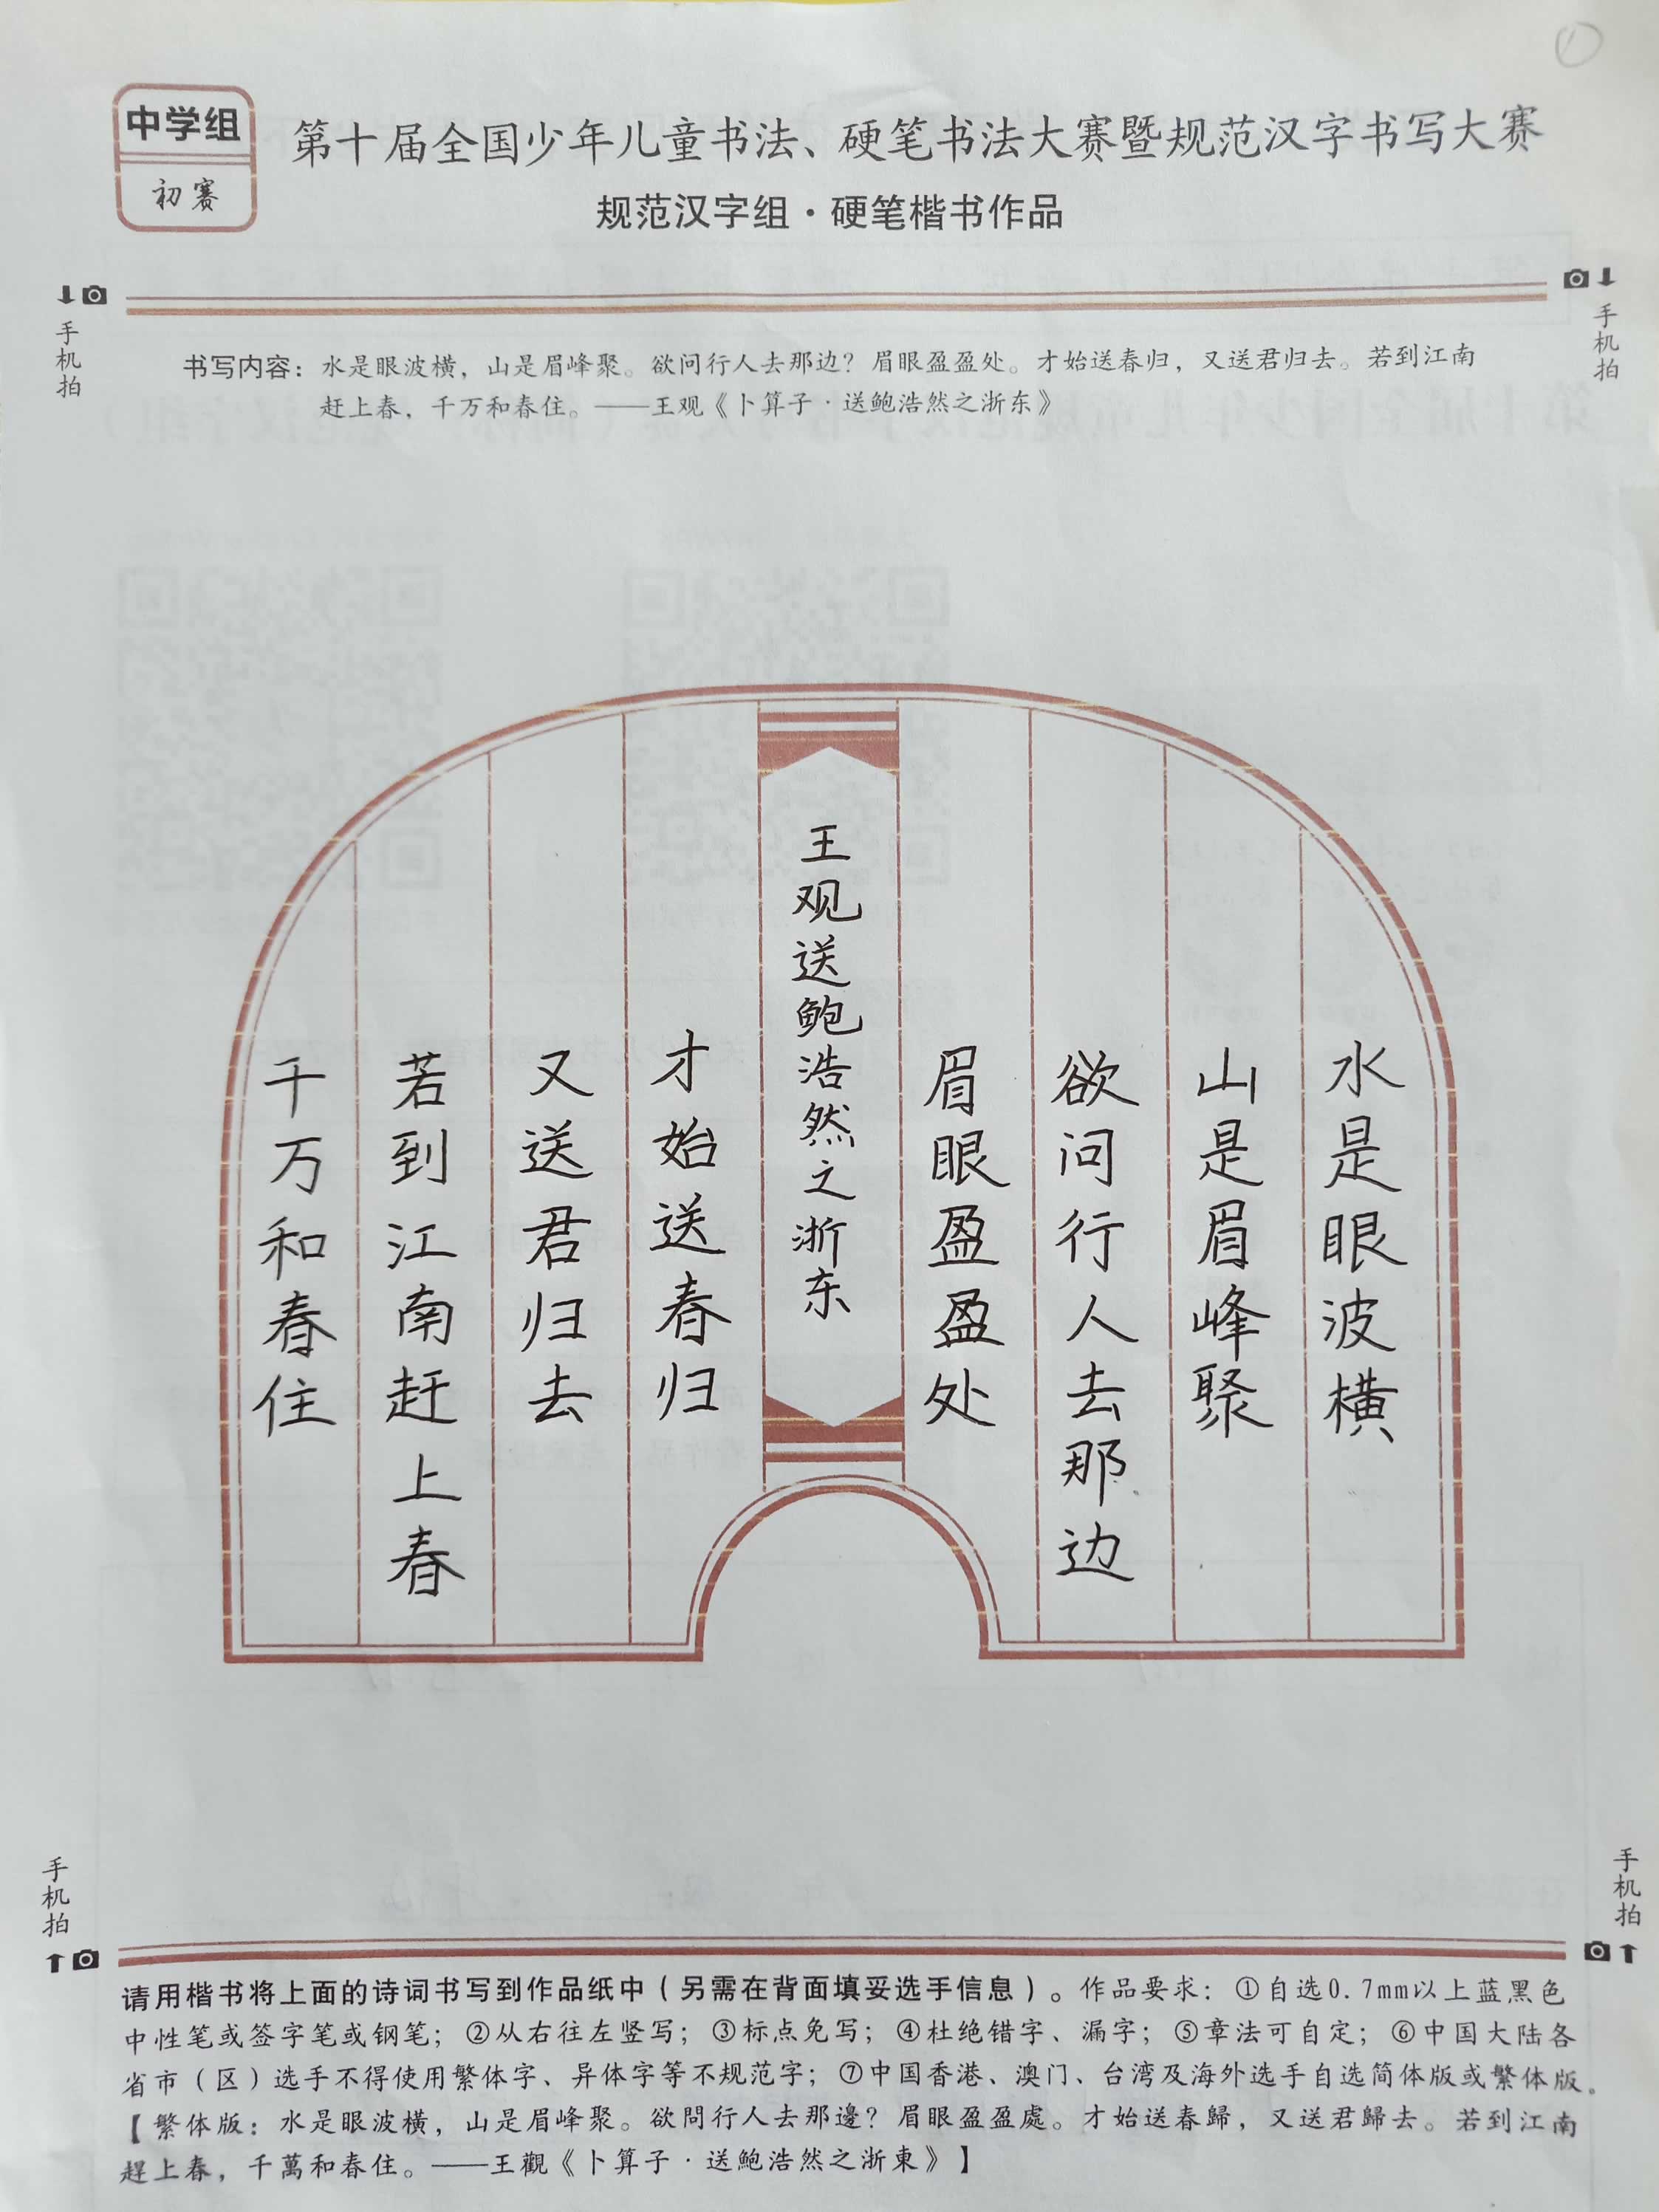 ①
中学组
初赛
第十届全国少年儿童书法、硬笔书法大赛暨规范汉字书写大赛
规范汉字组·硬笔楷书作品
手机拍
手机拍
书写内容：水是眼波横，山是眉峰聚。欲问行人去那边？眉眼盈盈处。才始送春归，又送君归去。若到江南
赶上春，千万和春住。——王观《卜算子·送鲍浩然之浙东》
水是眼波横
山是眉峰聚
欲问行人去那边
眉眼盈盈处
王观送鲍浩然之浙东
才始送春归
又送君归去
若到江南赶上春
千万和春住
手机拍
手机拍
请用楷书将上面的诗词书写到作品纸中（另需在背面填妥选手信息）。作品要求：①自选0.7mm以上蓝黑色
中性笔或签字笔或钢笔；②从右往左竖写；③标点免写；④杜绝错字、漏字；⑤章法可自定；⑥中国大陆各
省市（区）选手不得使用繁体字、异体字等不规范字；⑦中国香港、澳门、台湾及海外选手自选简体版或繁体版。
【繁体版：水是眼波橫，山是眉峰聚。欲問行人去那邊？眉眼盈盈處。才始送春歸，又送君歸去。若到江南
趕上春，千萬和春住。——王觀《卜算子·送鮑浩然之浙東》】